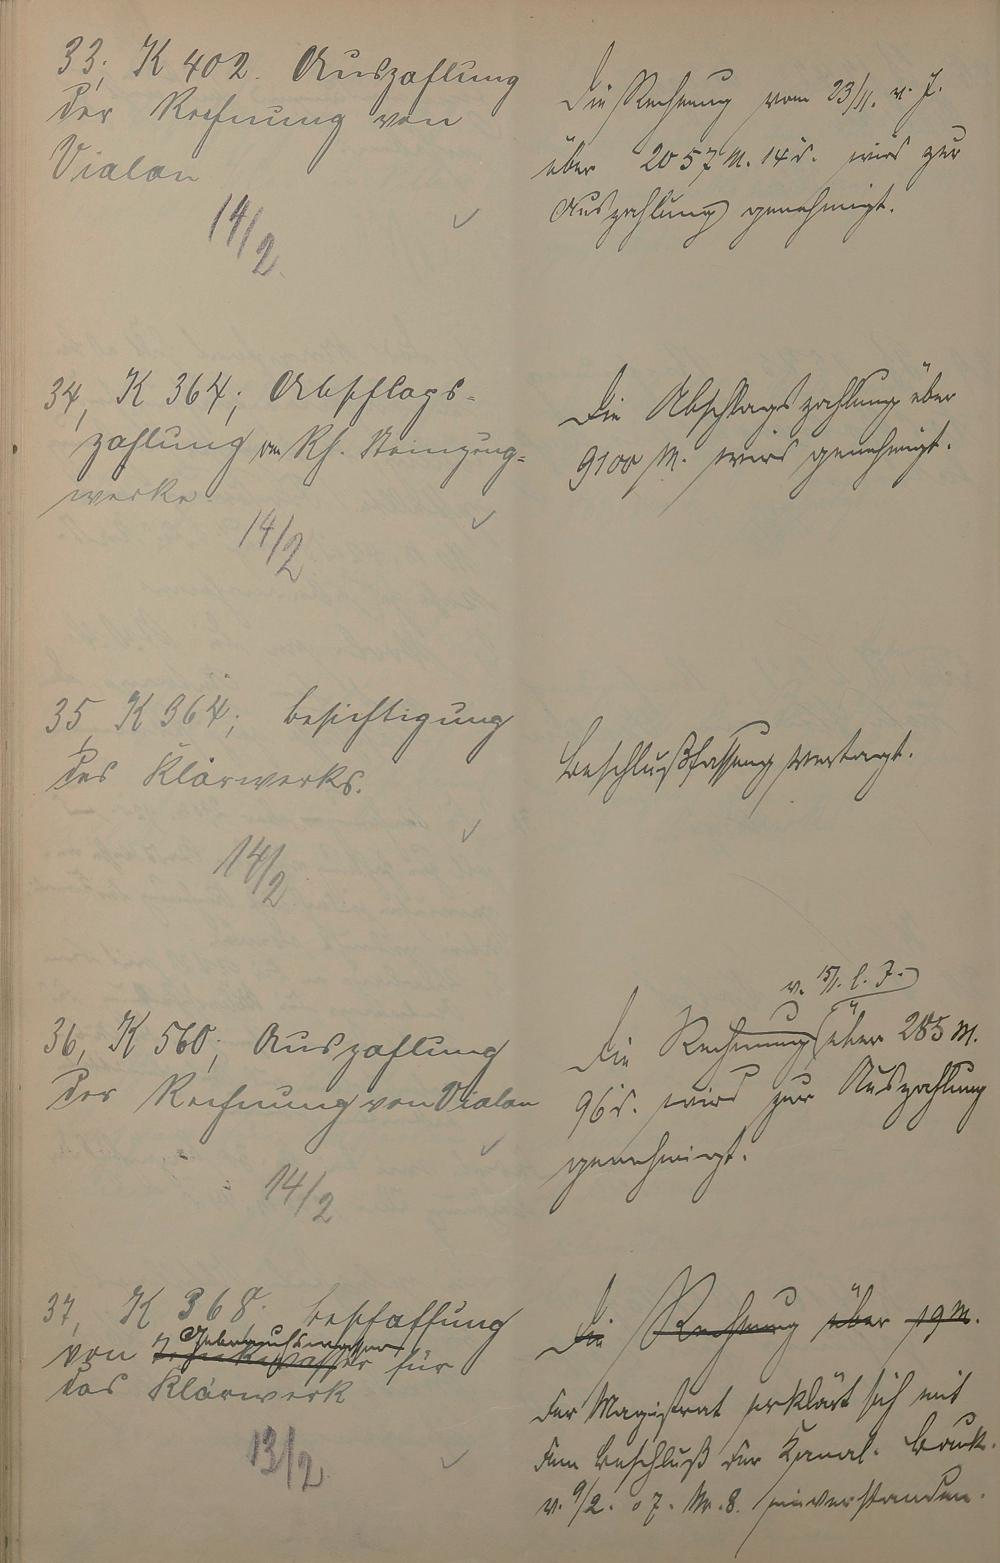 33, K 402. Auszahlung
der Rechnung von
Vialon
14/2
Die Rechnung vom 23/11. v. J.
über 2057 M. 14 d. wird zur
Auszahlung genehmigt.
34, K 364; Abschlags-
zahlung an Rh. Steinzeug-
werke.
14/2
Die Abschlagszahlung über
9100 M. wird genehmigt.
35, K 364; Besichtigung
des Klärwerks.
14/2
Beschlußfassung vertagt.
36, K 560; Auszahlung
der Rechnung von Vialon
14/2
v. 15/1. l. J.
Die Rechnung über 285 M.
96 d. wird zur Auszahlung
genehmigt.
37, K 368. Beschaffung
Gebrauchswasser
von Trinkwasser für
das Klärwerk
13/2
Die Rechnung über 19 M.
Der Magistrat erklärt sich mit
dem Beschluß der Kanal. Bauk.
v. 9/2. 07. Nr. 8. einverstanden.